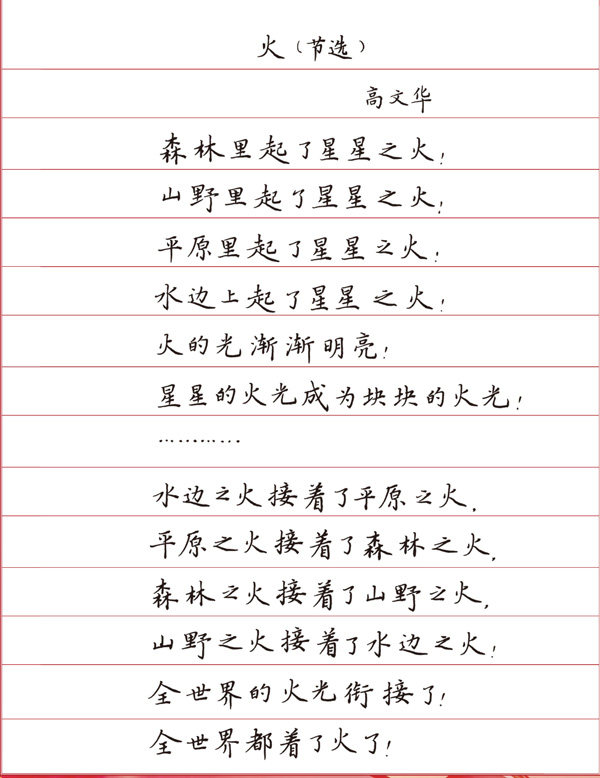 火（节选）
高文华
森林里起了星星之火！
山野里起了星星之火！
平原里起了星星之火！
水边上起了星星之火！
火的光渐渐明亮！
星星的火光成为块块的火光！
…………
水边之火接着了平原之火，
平原之火接着了森林之火，
森林之火接着了山野之火，
山野之火接着了水边之火！
全世界的火光衔接了！
全世界都着了火了！